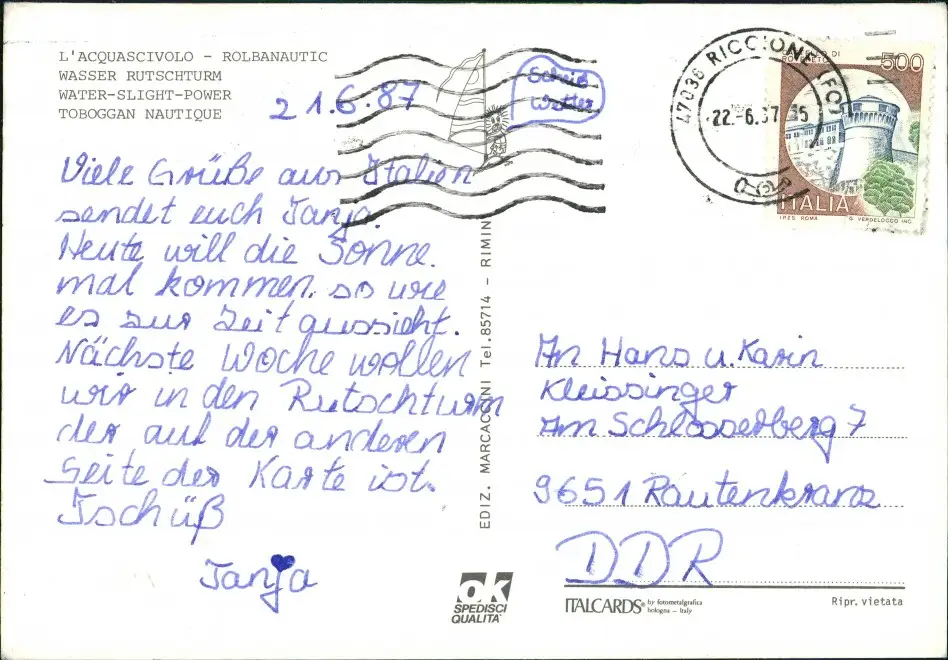 L'ACQUASCIVOLO - ROLBANAUTIC
WASSER RUTSCHTURM
WATER-SLIGHT-POWER
TOBOGGAN NAUTIQUE
21.6.87
Scheiß
Wetter
Viele Grüße aus Italien
sendet euch Tanja.
Heute will die Sonne
mal kommen. so wie
es zur Zeit aussieht.
Nächste Woche wollen
wir in den Rutschturm
der auf der anderen
Seite der Karte ist.
Tschüß
Tanja
EDIZ. MARCACCINI Tel.85714 - RIMINI
47036 RICCIONE (FO)
22.-6.87
500
ITALIA
IPZS ROMA
G. VERDELOCCO INC.
An Hans u. Karin
Kleissinger
Am Schlosserberg 7
9651 Rautenkranz
DDR
OK
SPEDISCI
QUALITA'
ITALCARDS® by fotometalgrafica
bologna - Italy
Ripr. vietata